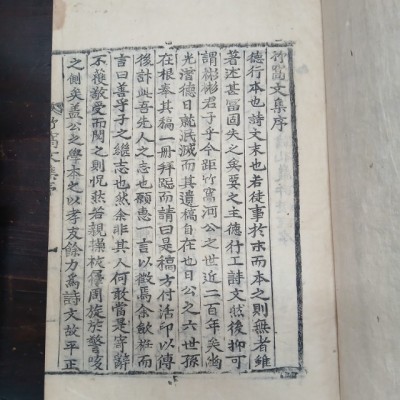 竹窩文集序
德行本也詩文末也若徒事於末而本之則無者雖
著述甚富固失之矣要之主德行工詩文然後抑可
謂彬彬君子乎今距竹窩河公之世近二百年矣幽
光潛德日就泯滅而其遺稿自在也日公之六世孫
在根奉其稿一冊拜臨而請曰是稿方付活印以傳
後計與吾先人之志也願惠一言以徵焉余斂衽而
言曰善乎子之繼志也然余非其人何敢當是寄辭
不獲敬受而閱之則怳然若親操杖屨周旋於警咳
之側矣盖公之學本之以孝友餘力為詩文故平正
竹窩文集序